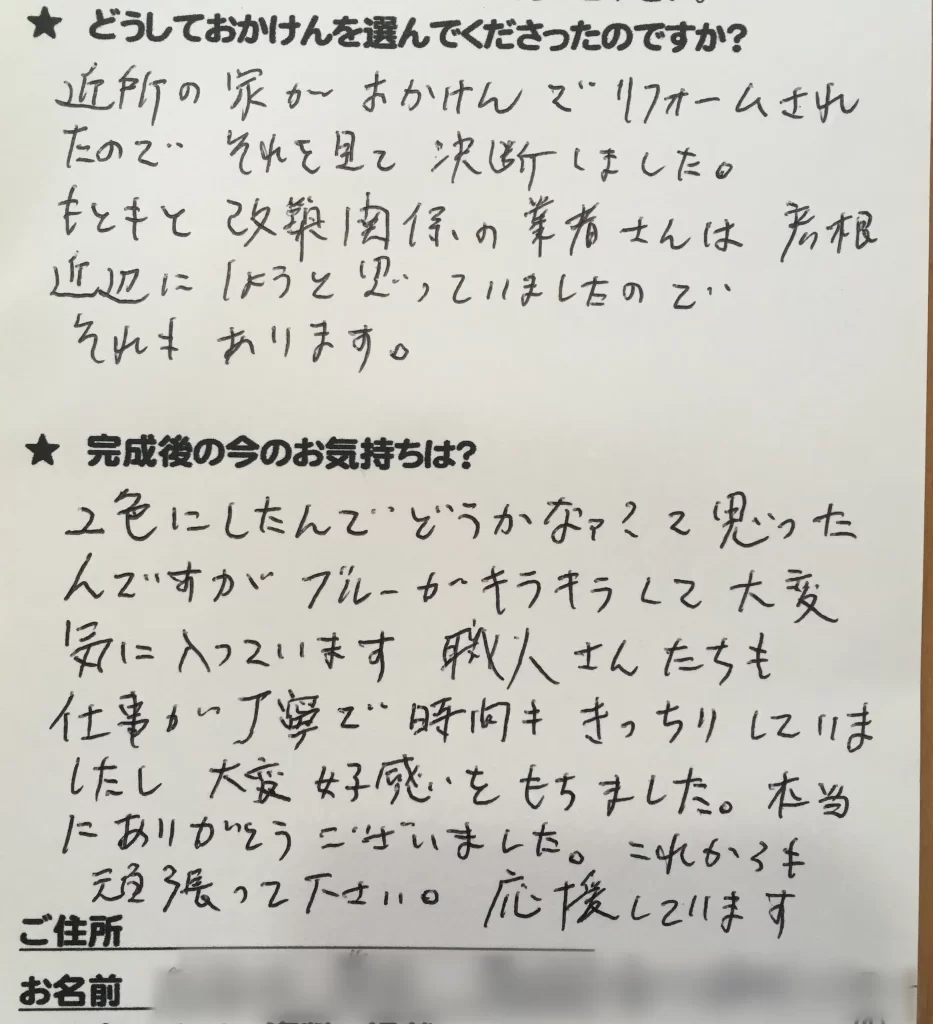 ★ どうしておかけんを選んでくださったのですか?
近所の家がおかけんでリフォームされ
たので それを見て決断しました。
もともと改築関係の業者さんは彦根
近辺にしようと思っていましたので
それもあります。
★ 完成後の今のお気持ちは?
2色にしたんでどうかなァ?って思った
んですが ブルーがキラキラして大変
気に入っています 職人さんたちも
仕事が丁寧で時間もきっちりしていま
したし 大変好感をもちました。本当
にありがとうございました。これからも
頑張って下さい。応援しています
ご住所
お名前